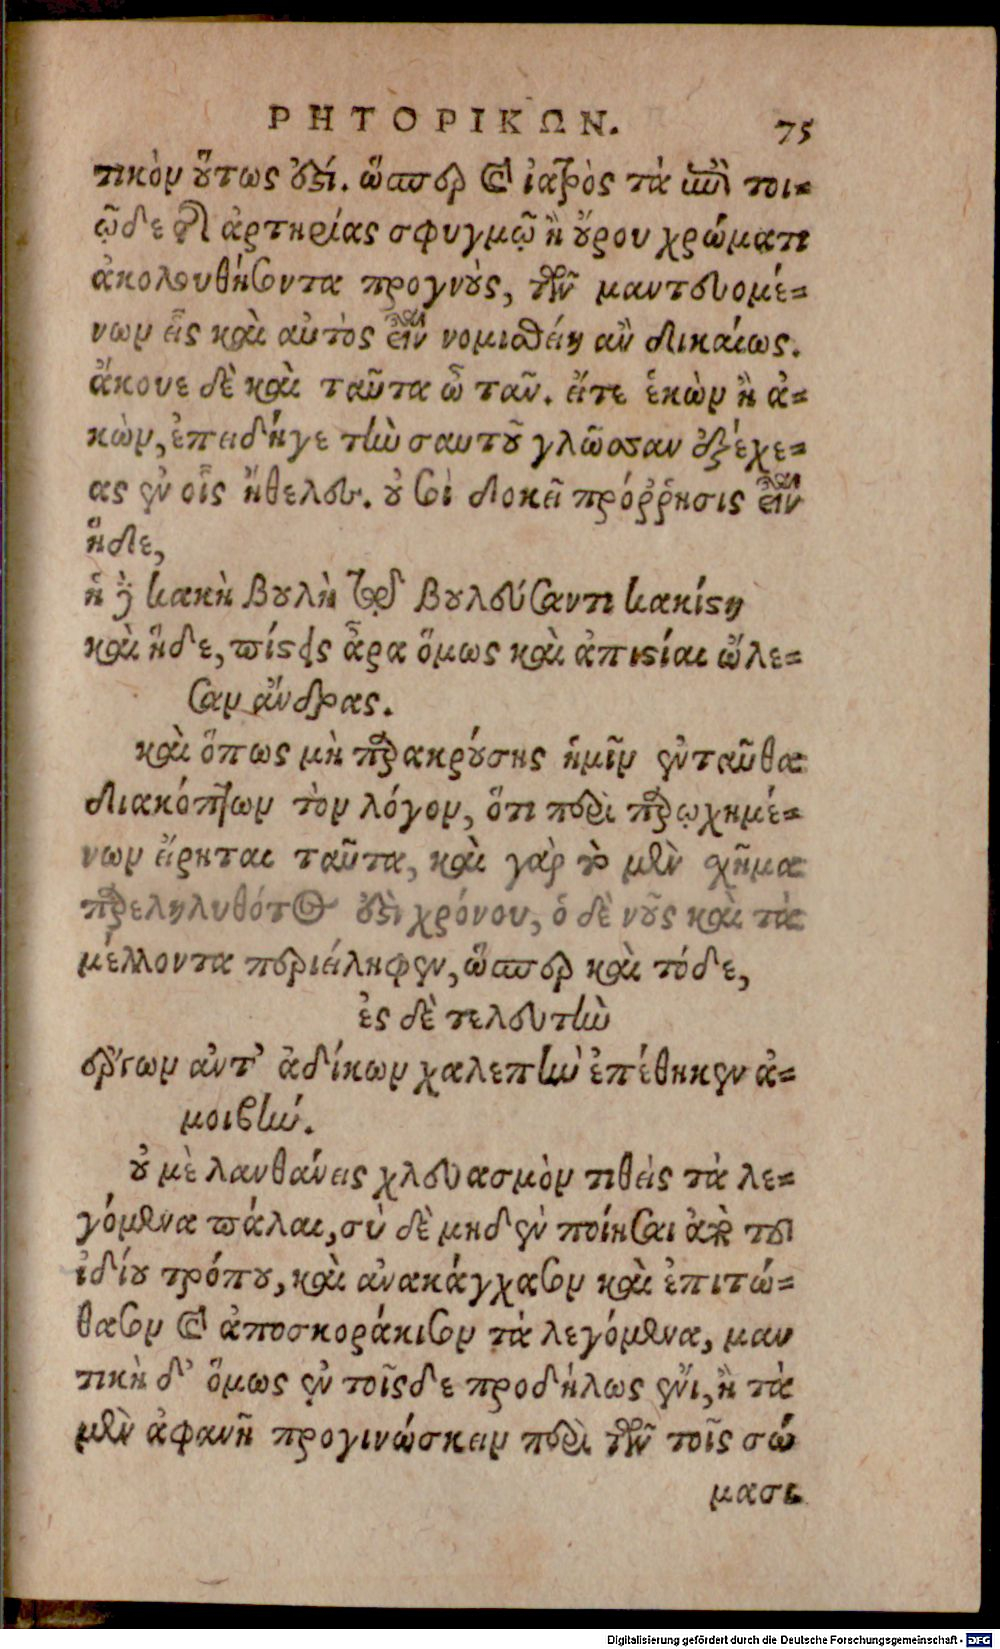 ΡΗΤΟΡΙΚΩΝ. 75
τικὸν οὕτως ἐστί. ὥσπερ καὶ ἰατρὸς τὰ τῷ τοι-
ῷδε τῆς ἀρτηρίας σφυγμῷ ἢ οὔρου χρώματι
ἀκολουθήσοντα προγνοὺς, τῶν μαντευομέ-
νων εἷς καὶ αὐτὸς εἶναι νομισθείη ἂν δικαίως.
ἄκουε δὲ καὶ ταῦτα ὦ ταῦ. εἴτε ἑκὼν ἢ ἀ-
κὼν, ἐπειδήγε τὴν σαυτοῦ γλῶσσαν ἐξέχε-
ας ἐν οἷς ἤθελες. οὐ σοὶ δοκεῖ πρόῤῥησις εἶναι
ἥδε,
ἡ γὰρ κακὴ βουλὴ τῷ βουλεύσαντι κακίστη
καὶ ἥδε, πίστεις ἆρα ὅμως καὶ ἀπιστίαι ὤλε-
σαν ἄνδρας.
καὶ ὅπως μὴ παρακρούσῃς ἡμῖν ἐνταῦθα
διακόπτων τὸν λόγον, ὅτι περὶ παρῳχημέ-
νων εἴρηται ταῦτα, καὶ γὰρ τὸ μὲν σχῆμα
παρεληλυθότος ἐστὶ χρόνου, ὁ δὲ νοῦς καὶ τὰ
μέλλοντα περιείληφεν, ὥσπερ καὶ τόδε,
ἐς δὲ τελευτὴν
ἔργων ἀντ’ ἀδίκων χαλεπὴν ἐπέθηκεν ἀ-
μοιβήν.
οὐ μὲ λανθάνεις χλευασμὸν τιθεὶς τὰ λε-
γόμενα πάλαι, σὺ δὲ μηδὲν ποίησαι παρὰ τοῦ
ἰδίου τρόπου, καὶ ἀνακάγχασον καὶ ἐπιτώ-
θασον καὶ ἀποσκοράκισον τὰ λεγόμενα, μαν
τικὴ δ’ ὅμως ἐν τοῖςδε προδήλως ἔνι, ἢ τὰ
μὲν ἀφανῆ προγινώσκειν περὶ τῶν τοῖς σώ
μασι
Digitalisierung gefördert durch die Deutsche Forschungsgemeinschaft - DFG